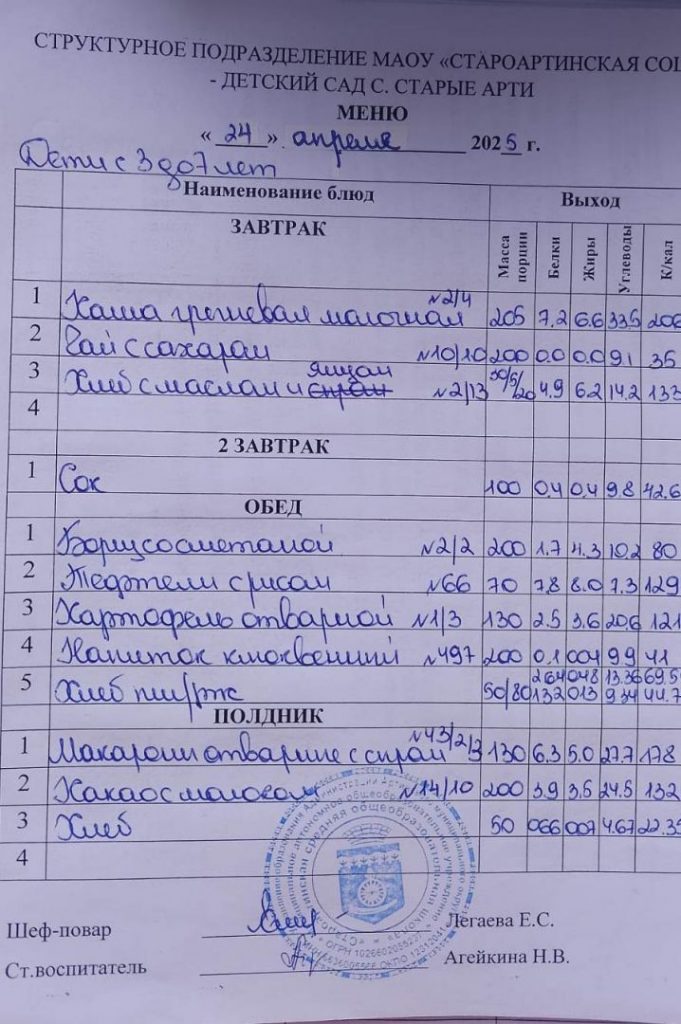 СТРУКТУРНОЕ ПОДРАЗДЕЛЕНИЕ МАОУ «СТАРОАРТИНСКАЯ СОШ
- ДЕТСКИЙ САД С. СТАРЫЕ АРТИ
МЕНЮ
« 24 » апреля 2025 г.
Дети с 3 до 7 лет
Наименование блюд Выход
ЗАВТРАК Масса порции Белки Жиры Углеводы К/кал
1 Каша гречневая молочная №2/4 205 7.2 6.6 33.5 206
2 Чай с сахаром №10/10 200 0.0 0.0 9.1 35
3 Хлеб с маслом и сыром яйцом №2/13 30/5/20 4.9 6.2 14.2 133
4
2 ЗАВТРАК
1 Сок 100 0.4 0.4 9.8 42.6
ОБЕД
1 Борщ со сметаной №2/2 200 1.7 4.3 10.2 80
2 Тефтели с рисом №66 70 7.8 8.0 7.3 129
3 Картофель отварной №1/3 130 2.5 3.6 20.6 121
4 Напиток клюквенный №497 200 0.1 0.04 9.9 41
5 Хлеб пш/рж 50/80 2.64 0.48 13.36 69.5
1.32 0.13 9.34 44.7
ПОЛДНИК
1 Макароны отварные с сыром №43/2/3 130 6.3 5.0 27.7 178
2 Какао с молоком №14/10 200 3.9 3.5 24.5 132
3 Хлеб 50 0.66 0.07 4.67 22.35
4
Шеф-повар Легаева Е.С.
Ст.воспитатель Агейкина Н.В.